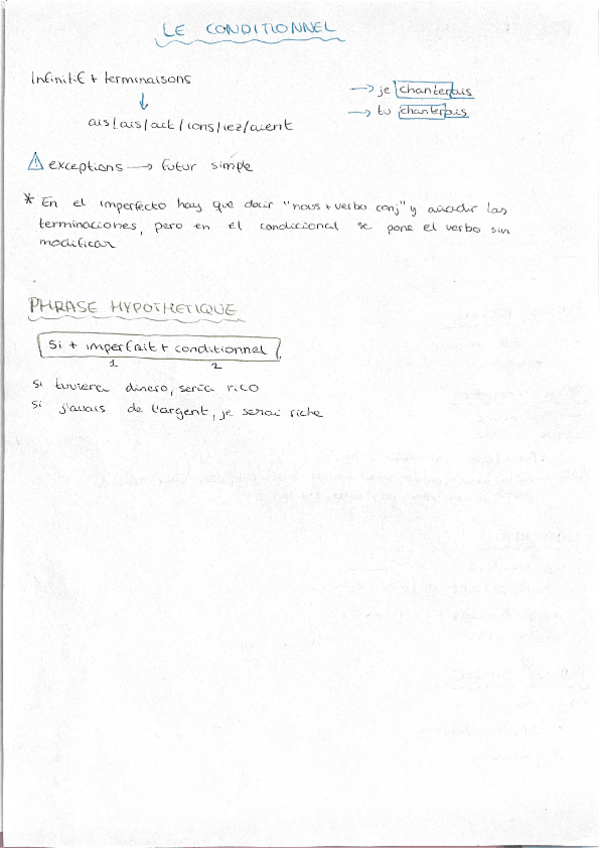 LE CONDITIONNEL
Infinitif + terminaisons
→ je chanterais
→ tu chanterais
ais/ais/ait/ions/iez/aient
⚠ exceptions → futur simple
* En el imperfecto hay que decir "nous + verbo conj" y añadir las
terminaciones, pero en el condicional se pone el verbo sin
modificar
PHRASE HYPOTHETIQUE
Si + imparfait + conditionnel
1 2
Si tuviera dinero, sería rico
Si j'avais de l'argent, je serai riche